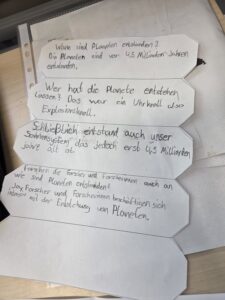 Wann sind Planeten entstanden?
Die Planeten sind vor 4,5 Milliarden Jahren
entstanden.
Wer hat die Planete entstehen
lassen? Das war ein Uhrknall also
Explosinsknall.
Schließlich entstand auch unser
Sonnensystem das jedoch erst 4,5 Milliarden
Jahre alt ist
Forschen die Forscher und Forscherinnen auch an
wie sind Planeten entstanden?
Ja, Forscher und Forscherinnen beschäftigen sich
mit der Entstehung von Planeten.